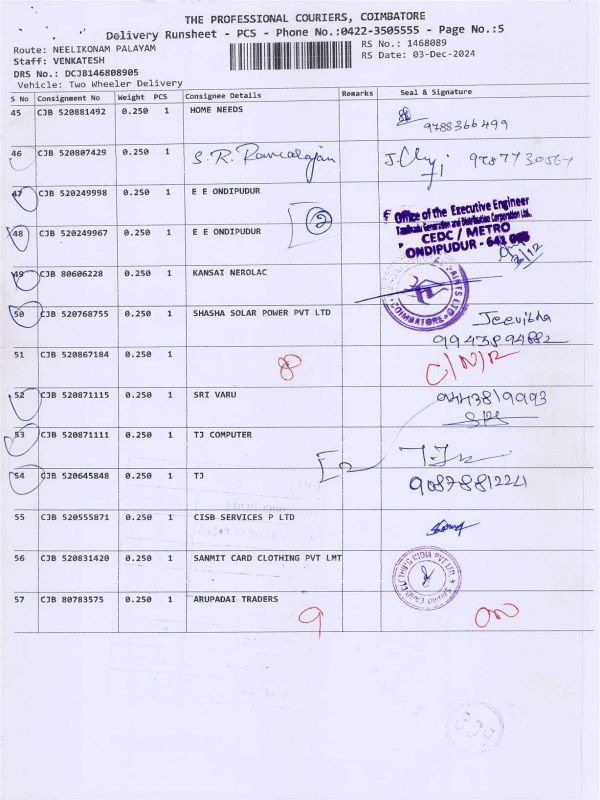 THE PROFESSIONAL COURIERS, COIMBATORE
Delivery Runsheet - PCS - Phone No.:0422-3505555 - Page No.:5
Route: NEELIKONAM PALAYAM
RS No.: 1468089
Staff: VENKATESH
RS Date: 03-Dec-2024
DRS No.: DCJB146808905
Vehicle: Two Wheeler Delivery
S No Consignment No Weight PCS Consignee Details Remarks Seal & Signature
45 CJB 520881492 0.250 1 HOME NEEDS
9788366499
46 CJB 520807429 0.250 1 S. R. 
47 CJB 520249998 0.250 1 E E ONDIPUDUR
2
Office of the Executive Engineer
Tamilnadu Generation and Distribution Corporation Ltd.
CEDC / METRO
ONDIPUDUR - 641
48 CJB 520249967 0.250 1 E E ONDIPUDUR
49 CJB 80606228 0.250 1 KANSAI NEROLAC
COIMBATORE
50 CJB 520768755 0.250 1 SHASHA SOLAR POWER PVT LTD Jeevitha
9943894882
51 CJB 520867184 0.250 1 8 C/N/R
52 CJB 520871115 0.250 1 SRI VARU
53 CJB 520871111 0.250 1 TJ COMPUTER
54 CJB 520645848 0.250 1 TJ
9087881221
55 CJB 520555871 0.250 1 CISB SERVICES P LTD
56 CJB 520831420 0.250 1 SANMIT CARD CLOTHING PVT LMT
57 CJB 80783575 0.250 1 ARUPADAI TRADERS
9